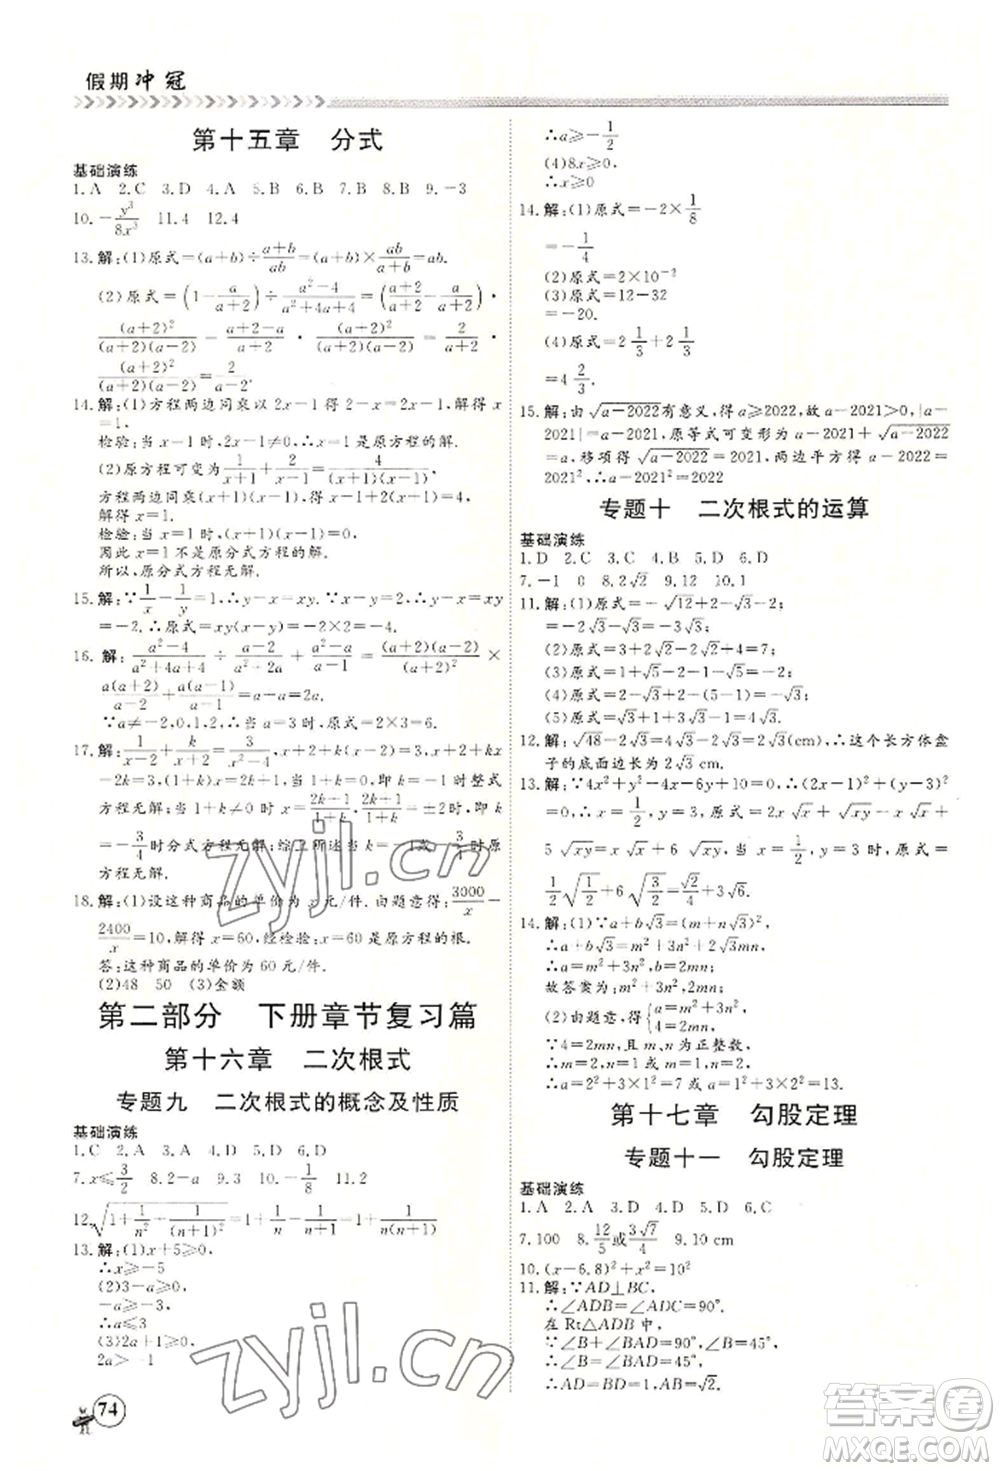 假期冲冠
第十五章 分式
基础演练
1.A 2.C 3.D 4.A 5.C 6.B 7.B 8.B 9.-3
10.-y³/8x³ 11.4 12.4
13.解:(1)原式=(a+b)÷(a+b)/ab=(a+b)×ab/(a+b)=ab.
(2)原式=(1-a/(a+2))÷(a²-4)/(a²+4a+4)=((a+2)/(a+2)-a/(a+2))·
(a+2)²/(a+2)(a-2)=(a+2-a)/(a+2)·(a+2)²/(a+2)(a-2)=2/(a+2)·
(a+2)²/(a+2)(a-2)=2/(a-2)
14.解:(1)方程两边同乘以2x-1得x-2=2x-1+
解得x=-1.
检验:当x=-1时,2x-1≠0,∴x=-1.
(2)原方程可变为1/(x+1)+2/(x-1)=4/(x+1)(x-1)
方程两边同乘(x+1)(x-1)得(x-1)+2(x+1)=4.
解得x=1.
检验:当x=1时,(x+1)(x-1)=0.
因此x=1不是原分式方程的解.
所以,原分式方程无解.
15.解:∵1/x-1/y=1,∴y-x=xy,∵xy=-2,∴y-x=xy
=-2.∴原式=xy(x-y)=-2×2=-4.
16.解:(a²-4)/(a²+4a+4)÷(a-2)/(a²+2a)-2a=(a+2)(a-2)/(a+2)²×
a(a+2)/(a-2)-2a=a-2a=-a
∵a≠-2,0,1,2,∴当a=3时,原式=2×3=6.
17.解:1/x+k/(x-1)=3/x(x-1),x-1+kx=3-2x+2+kx
-2k=3,(k+1)x=2k-1,即k+1=0即k=-1时整式
方程无解;当k+1≠0时,x=(2k-1)/(k+1),当(2k-1)/(k+1)=±2时,即k
=-3/4时分式方程无解;综上所述当k=-1或-3/4时原
方程无解.
18.解:(1)设这种商品的单价为x元/件.由题意得:3000/x-
2400/x=10,解得x=60,经检验:x=60是原方程的根.
答:这种商品的单价为60元/件.
(2)48 50 (3)金额
第二部分 下册章节复习篇
第十六章 二次根式
专题九 二次根式的概念及性质
基础演练
1.C 2.A 3.A 4.B 5.D 6.A
7.x≤3/2 8.2-a 9.3 10.-1/8 11.5
12.√(1+1/n²+1/(n+1)²)=1+1/n-1/(n+1)=1+1/n(n+1)
13.解:(1)x+5≥0,
∴x≥-5
(2)3-a≥0,
-a≥-3,
∴a≤3
(3)2a+1≥0,
2a>-1
∴a≥-1/2
(4)8x≥0,
∴x≥0
14.解:(1)原式=-2×1/8
=-1/4
(2)原式=2×10⁻¹
(3)原式=12-32
=-20.
(4)原式=2 1/3+2 1/3
=4 2/3.
15.解:由√(a-2022)有意义,得a≥2022,故a-2021>0,|a-
2021|=a-2021,原等式可变形为a-2021+√(a-2022)
=a,移项得√(a-2022)=2021,两边平方得a-2022=
2021²,∴a-2021²=2022
专题十 二次根式的运算
基础演练
1.D 2.C 3.C 4.B 5.D 6.D
7.-1 0 8.2√2 9.12 10.1
11.解:(1)原式=-√12+2+√3-2;
=-2√3-√3=-√3;
(2)原式=2√3-2√3=0;
(3)原式=3+4=7;
(4)原式=√2+2-1-√2=1;
(5)原式=1-2-(5-1)=-5;
(6)原式=2√3+1-(√3-2)=√3+3.
12.解:√48-2√3=2√3(cm),∴这个长方体盒
子的底面边长为2√3 cm.
13.解:∵4x²+y²-4x-6y+10=0,∴(2x-1)²+(y-3)²
=0,∴x=1/2,y=3,∴原式=2x√x+√xy-x√x+
5√xy=x√x+6√xy,当x=1/2,y=3时,原式=1/2
√(1/2)+6√(3/2)=√2/4+3√6.
14.解:(1)∵a+b√3=(m+n√3)²,
∴a+b√3=m²+3n²+2mn√3,
∴a=m²+3n²,b=2mn;
故答案为:m²+3n²,2mn;
(2)由题意,得{a=m²+3n² 4=2mn,
∵4=2mn,且m、n为正整数,
∴m=2,n=1或m=1,n=2,
∴a=2²+3×1²=7或a=1²+3×2²=13.
第十七章 勾股定理
专题十一 勾股定理
基础演练
1.A 2.A 3.A 4.B 5.D 6.C
7.100 8.12/5或3√7/4 9.10 cm
10.(x-6.8)²+x²=10²
11.解:∵AD⊥BC,
∴∠ADB=∠ADC=90°.
在Rt△ADB中,
∵∠B+∠BAD=90°,∠B=45°,
∴∠B=∠BAD=45°,
∴AD=BD=1,∴AB=√2.
74
zyjl.cn
zyjl.cn
答案圈
MXQE.COM